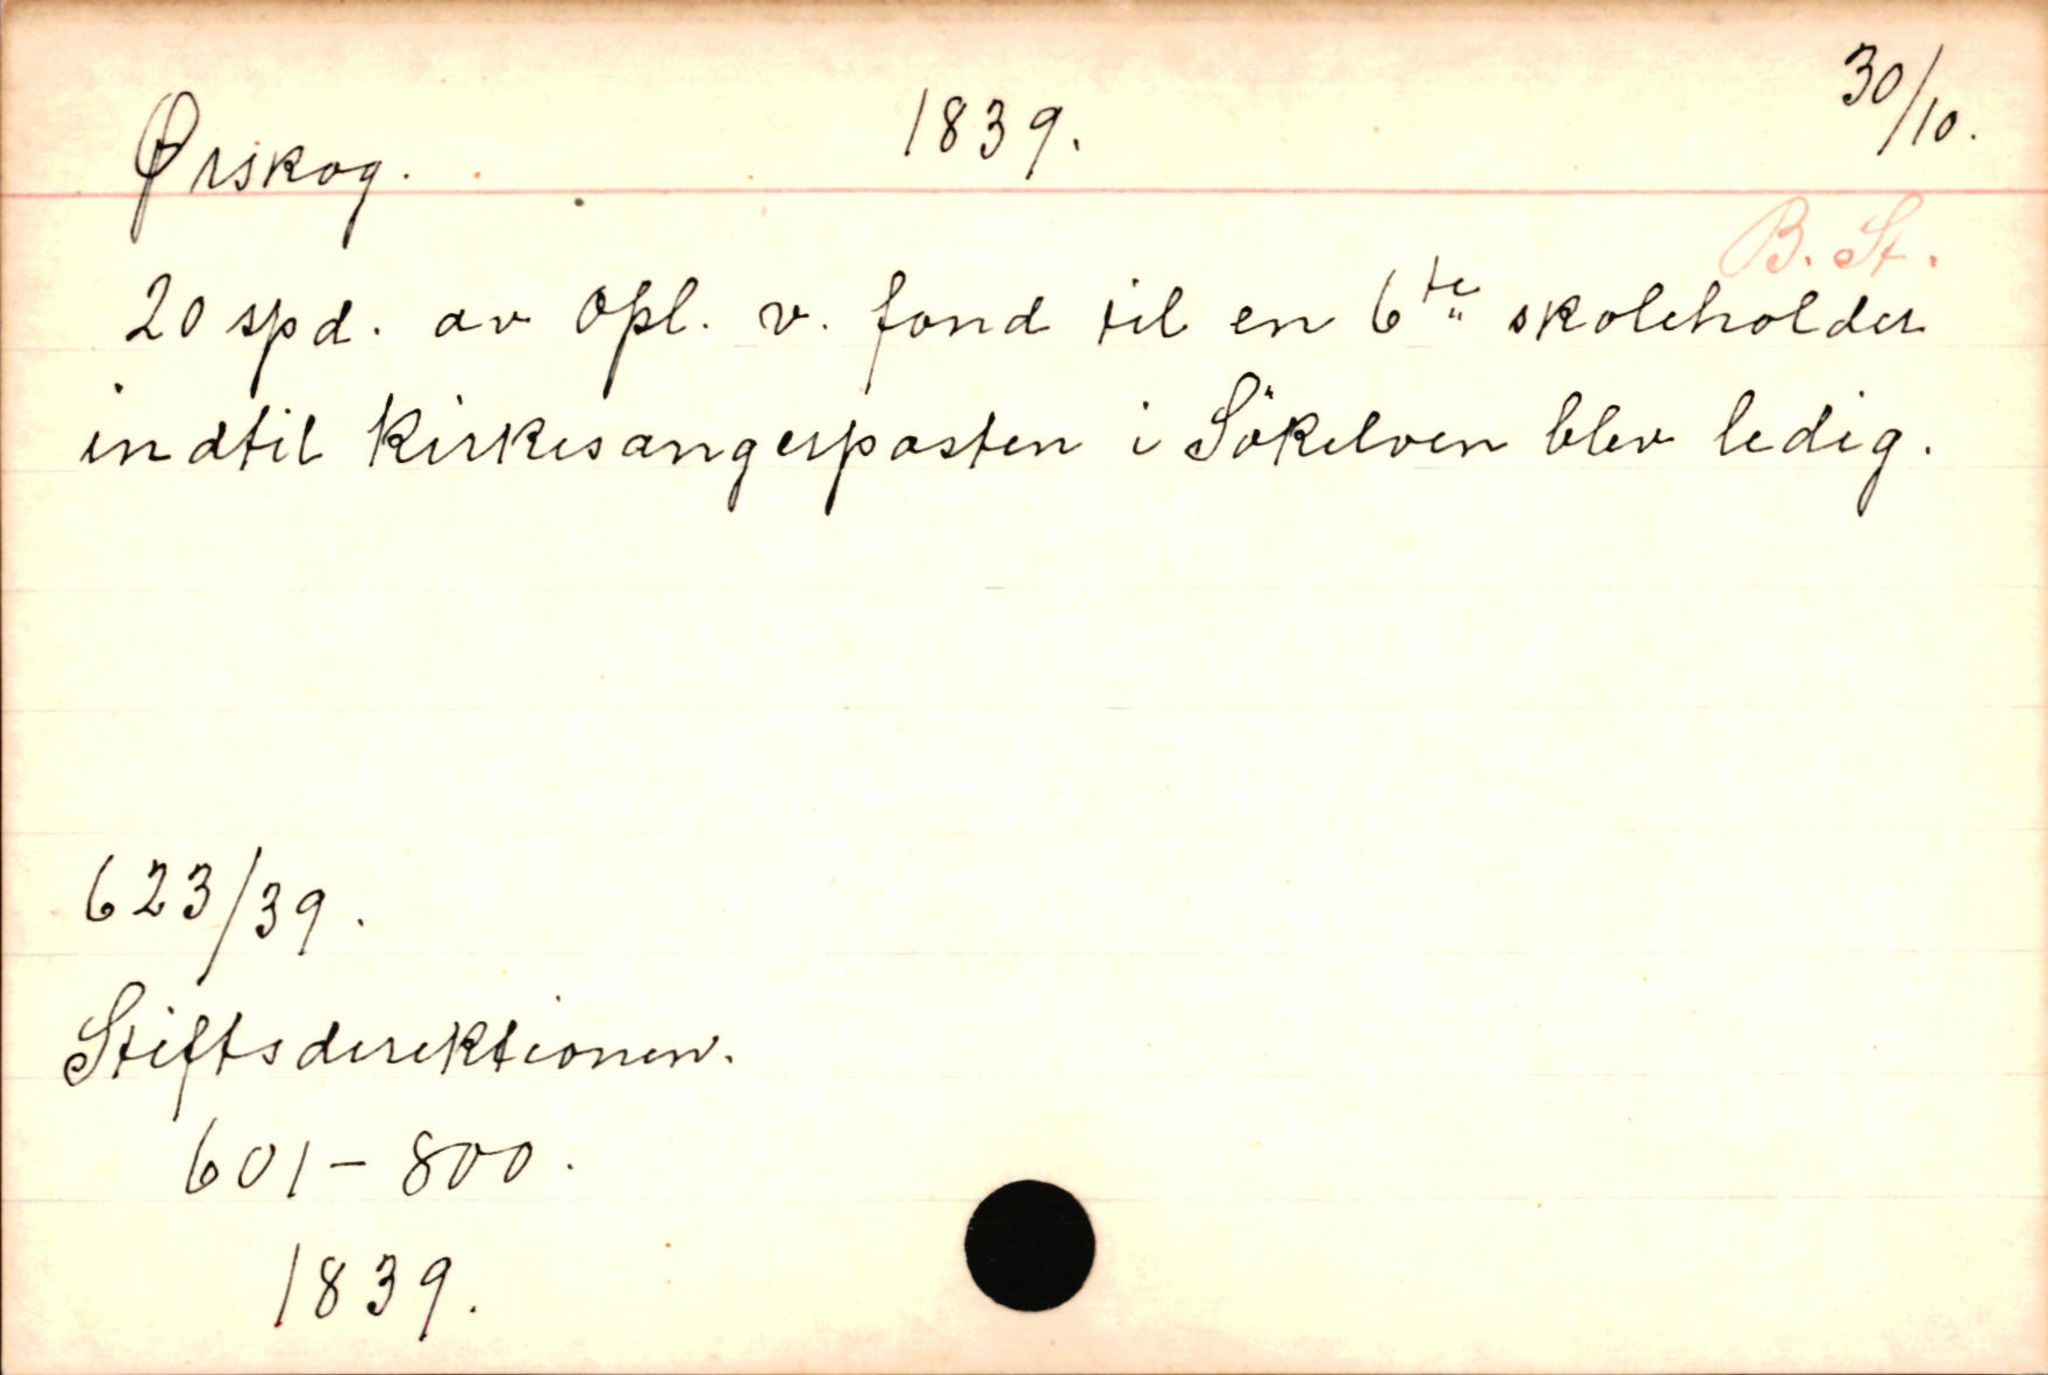 Ørskog. 1839. 30/10.
B. St.
20 spd. av Opl. v. fond til en 6te skoleholder
indtil kirkesangerposten i Sökelven blev ledig.
623/39.
Stiftsdirektionen.
601-800.
1839.